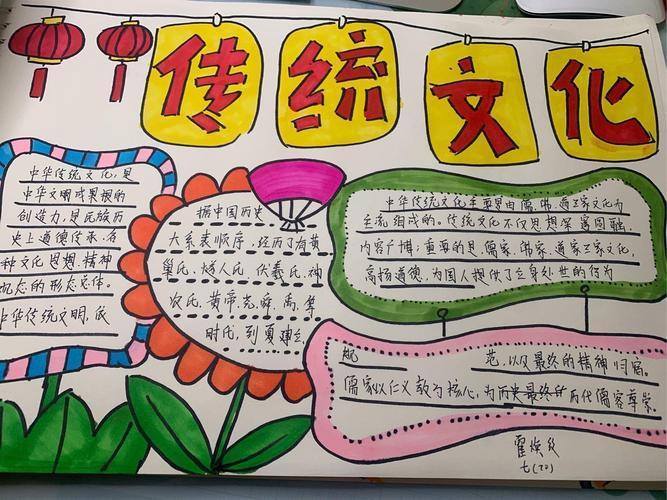 传统文化
中华传统文化,是
中华文明成果根的
创造力,是民族历
史上道德传承、各
种文化思想、精神
观态的形态总体。
中华传统文明,依
据中国历史
大系表顺序,经历了有黄
巢氏、燧人氏、伏羲氏、神
农氏、黄帝、尧、舜、禹、等
时代,到夏建立,
中华传统文化主要是由儒、佛、道三家文化为
主流组成的。传统文化不仅思想深邃圆融,
内容广博;重要的是儒家、佛家、道家三家文化,
高扬道德,为国人提供了立身处世的行为
规 范,以及最终的精神归宿。
儒家以仁义教为核心,为历史最终 历代儒客尊崇。
七(20)